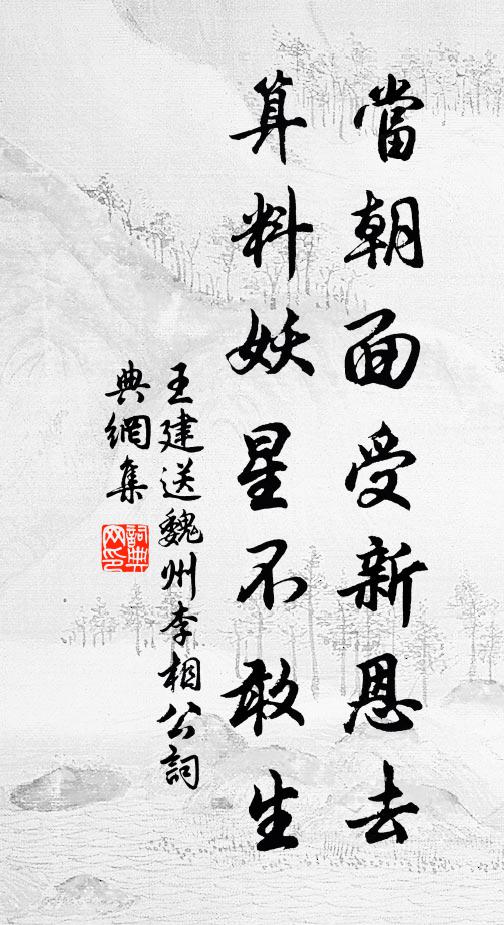 當朝面受新恩去
算料妖星不敢生
王建送魏州李相公詞
典網集
詞典
网印